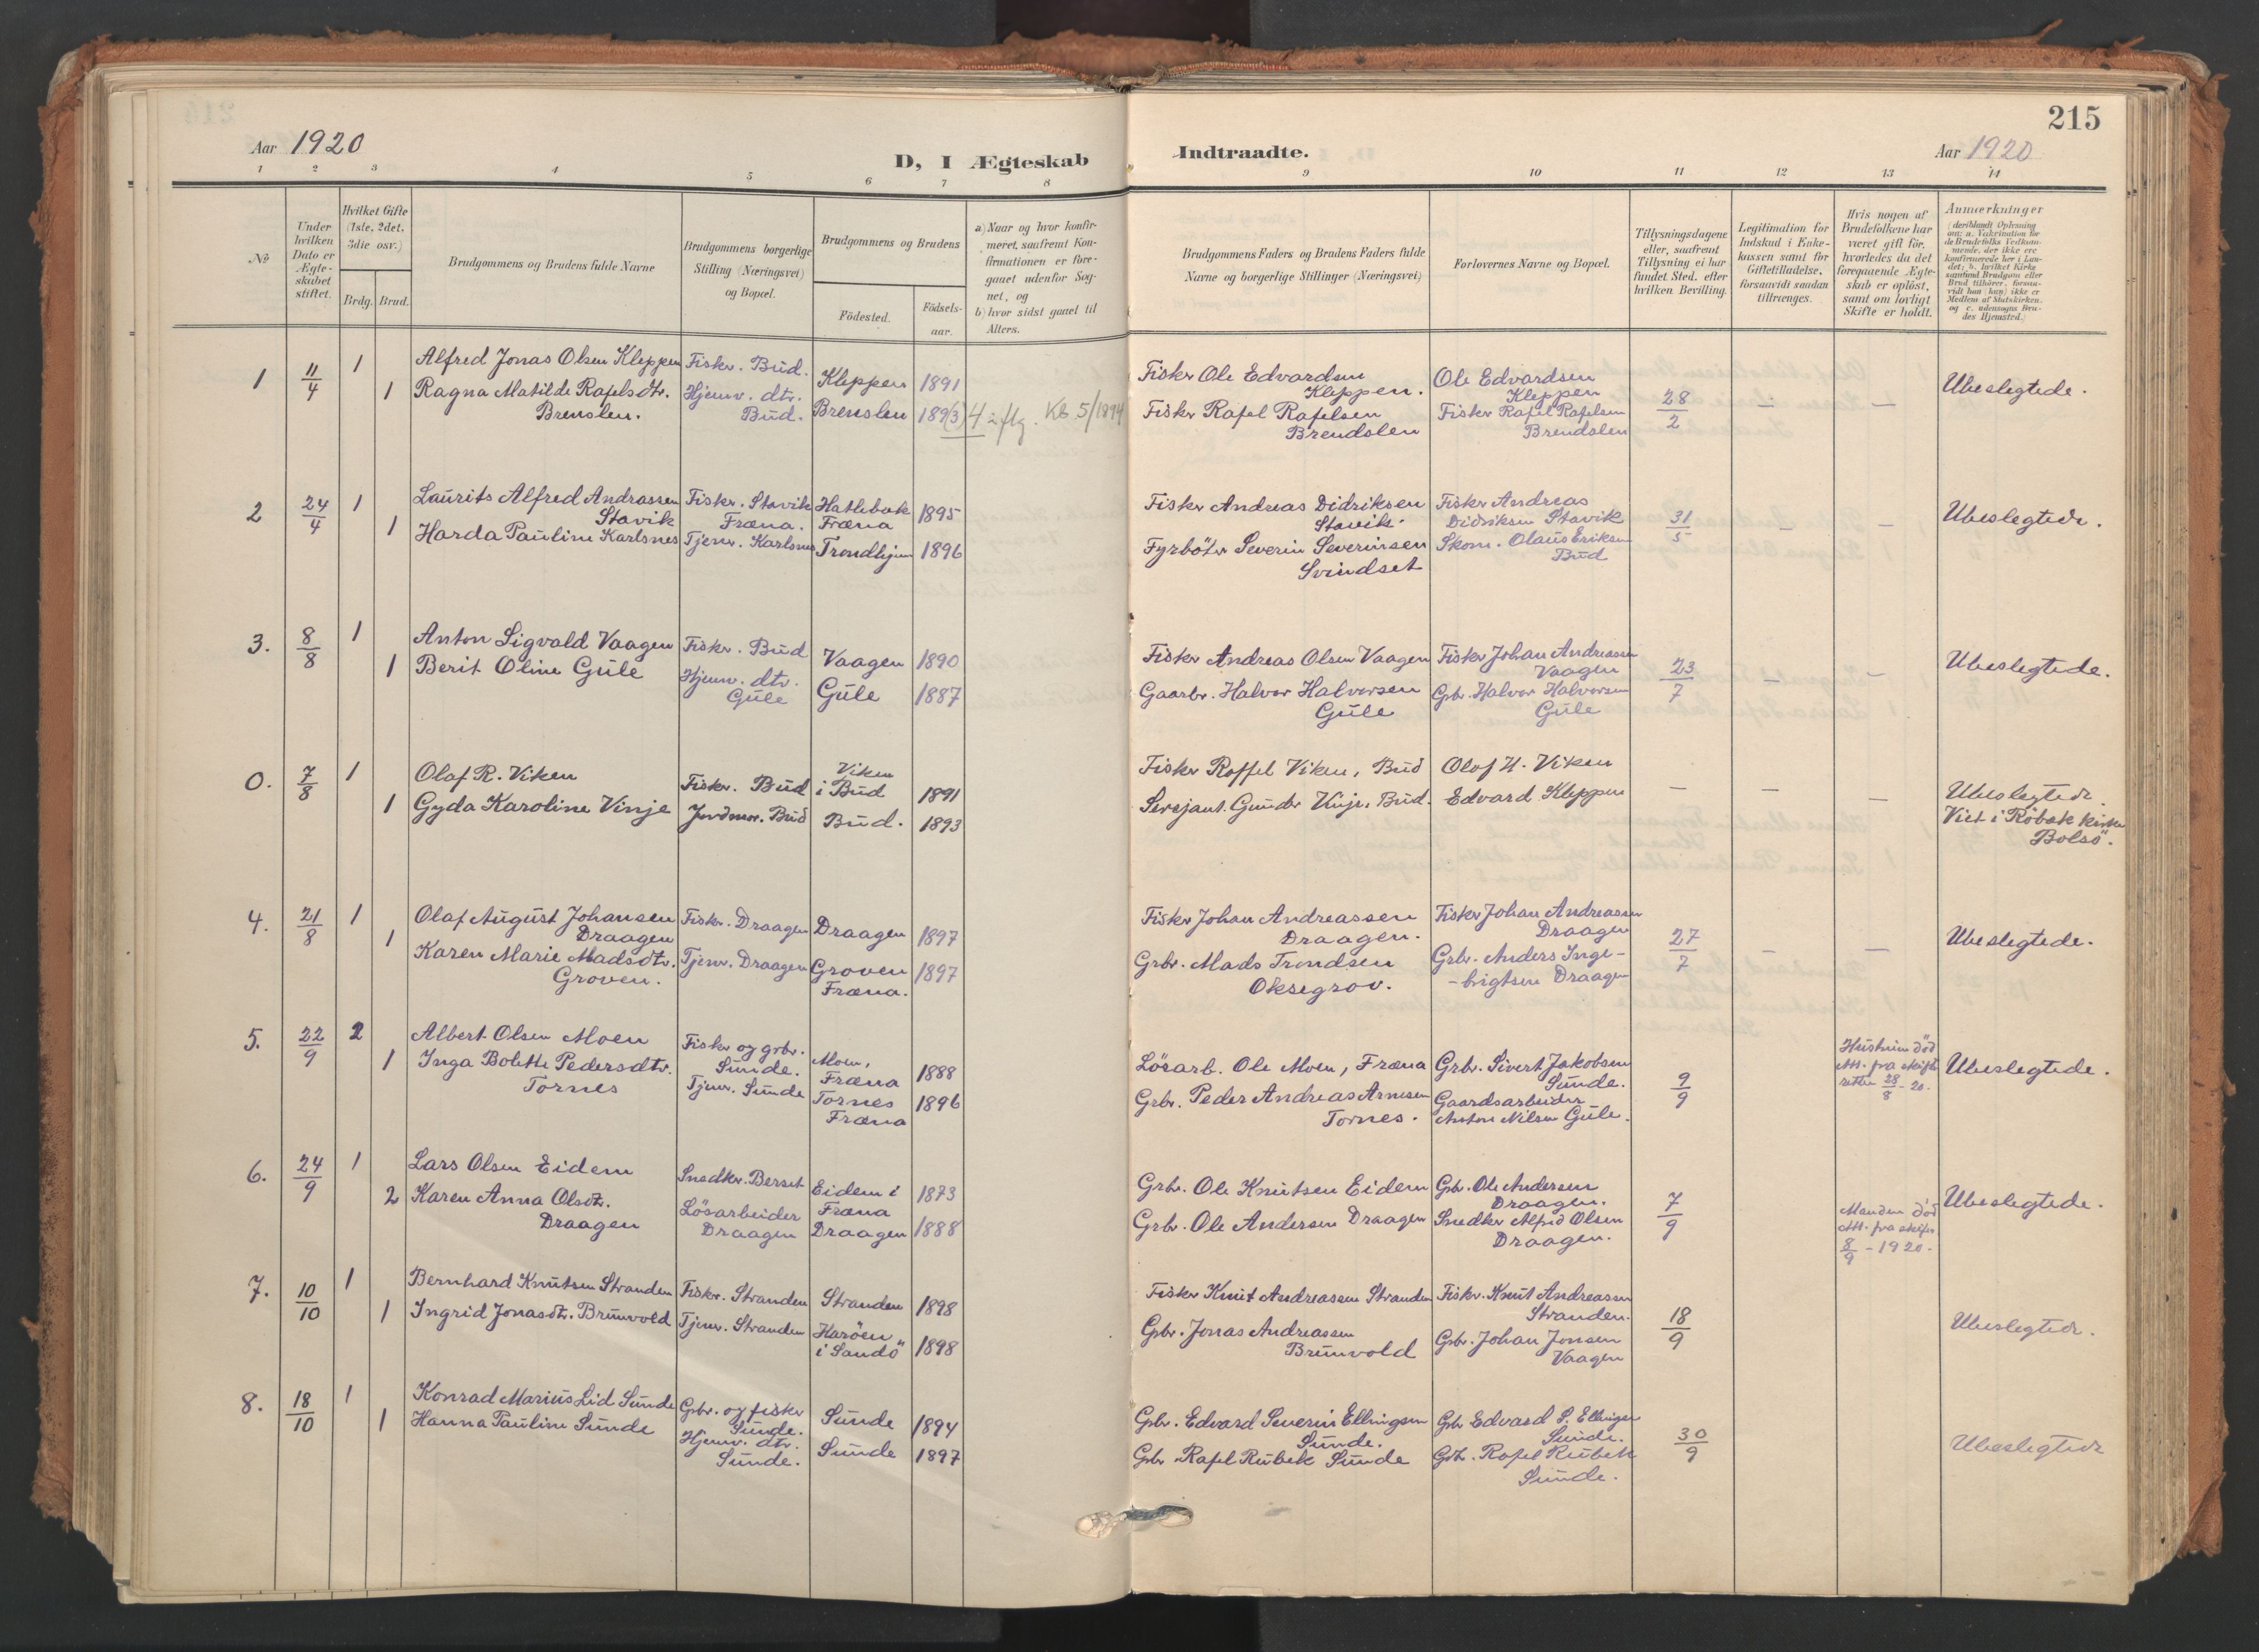 215
Aar 1920
D, I Ægteskab
Indtraadte.
Aar 1920
1 2 3 4 5 6 7 8 9 10 11 12 13 14
No
Under hvilken Dato er Ægteskabet stiftet.
Hvilket Gifte (1ste, 2det, 3die osv.)
Brdg. Brud.
Brudgommens og Brudens fulde Navne
Brudgommens borgerlige Stilling (Næringsvei) og Bopæl.
Brudgommens og Brudens
Födested.
Födsels-aar.
a) Naar og hvor konfirmeret, saafremt Konfirmationen er foregaaet udenfor Sognet, og
b) hvor sidst gaaet til Alters.
Brudgommens Faders og Brudens Faders fulde Navne og borgerlige Stillinger (Næringsvei)
Forlovernes Navne og Bopæl.
Tillysningsdagene eller, saafremt Tillysning ei har fundet Sted, efter hvilken Bevilling.
Legitimation for Indskud i Enkekassen samt for Giftetilladelse, forsaavidt saadan tiltrænges.
Hvis nogen af Brudefolkene har været gift för, hvorledes da det foregaaende Ægteskab er oplöst, samt om lovligt Skifte er holdt.
Anmerkninger
(deriblandt Oplysning om: a. Vakcination for de Brudefolks Vedkommende, der ikke ere konfirmerede her i Landet; b. hvilket Kirkesamfund Brudgom eller Brud tilhører, forsaavidt han (hun) ikke er Medlem af Statskirken, og c. udensogns Brudes Hjemsted.)
1 11/4 1 Alfred Jonas Olsen Kleppen Fisker. Bud. Kleppen 1891
1 Ragna Matilde Rafelsdtr. Brenslen. Hjemv. dtr. Bud. Brenslen 189(3) 4 Kb 5/1894
Fisker Ole Edvardsen Kleppen. Ole Edvardsen Kleppen 28/2 — — Ubeslegtede.
Fisker Rafel Rafelsen Brendslen Fisker Rafel Rafelsen Brendslen
2 24/4 1 Laurits Alfred Andreassen Stavik Fisker. Stavik Fræna. Hatlebak Fræna 1895
1 Harda Pauline Karlsnes Tjener. Karlsnes Trondhjem 1896
Fisker Andreas Didriksen Stavik. Fisker Andreas Didriksen Stavik 31/5 — — Ubeslegtede.
Fyrböter Severin Severinsen Svindset Skom. Olaus Eriksen Bud
3. 8/8 1 Anton Sigvald Vaagen Fisker. Bud Vaagen 1890
1 Berit Oline Gule Hjemv. dtr. Gule Gule 1887
Fisker Andreas Olsen Vaagen Fisker Johan Andreassen Vaagen 23/7 — — Ubeslegtede.
Gaarbr. Halvor Halvorsen Gule Grbr. Halvor Halvorsen Gule
0. 7/8 1 Olaf R. Viken Fisker. Bud Viken i Bud 1891
1 Gyda Karoline Vinje Jordmor. Bud Bud. 1893
Fisker Roffel Viken, Bud Olof H. Viken — — — Ubeslegtede.
Sersjant Gunder Vinje, Bud. Edvard Kleppen Viet i Röbek kirke Bolsö.
4. 21/8 1 Olaf August Johansen Draagen Fisker. Draagen Draagen 1897
1 Karen Marie Madsdtr. Groven. Tjener. Draagen Groven Fræna. 1897
Fisker Johan Andreassen Draagen. Fisker Johan Andreassen Draagen 27/7 — — Ubeslegtede.
Grbr. Mads Trondsen Oksegrov. Grbr. Anders Inge-brigtsen Draagen
5. 22/9 2 Albert Olsen Moen Fisker og grbr. Sunde. Moen, Fræna 1888
1 Inga Bolette Pedersdtr. Tornes Tjener. Sunde Tornes Fræna 1896
Lösarb. Ole Moen, Fræna Grbr. Sivert Jakobsen Sunde. 9/9 Hustruen död Att. fra skifteretten 28/8-20. Ubeslegtede.
Grbr. Peder Andreas Arnesen Tornes. Gaardsarbeider Anton Nilsen Gule.
6. 24/9 1 Lars Olsen Eidem Snedker. Berset Eidem i Fræna 1873
2 Karen Anna Olsdtr. Draagen Lösarbeider Draagen Draagen 1888
Grbr. Ole Knutsen Eidem Grbr. Ole Andersen Draagen. 7/9 Manden död Att. fra skifter 8/9-1920. Ubeslegtede.
Grbr. Ole Andersen Draagen Snedker Alfred Olsen Draagen.
7. 10/10 1 Bernhard Knutsen Stranden Fisker. Stranden Stranden 1898
1 Ingrid Jonasdtr. Brunvold Tjener. Stranden Haröen i Sandö 1898
Fisker Knut Andreassen Stranden Fisker. Knut Andreassen Stranden. 18/9 Ubeslegtede.
Grbr. Jonas Andreassen Brunvold Grbr. Johan Jonsen Vaagen
8. 18/10 1 Konrad Marius Lid Sunde Grbr. og fisker Sunde. Sunde 1894
1 Hanna Pauline Sunde Hjemv. dtr. Sunde. Sunde 1897
Grbr. Edvard Severin Ellingsen Sunde. Grbr Edvard S. Ellingsen Sunde. 30/9 Ubeslegtede
Grbr. Rafel Rubek Sunde Grbr. Rafel Rubek Sunde.